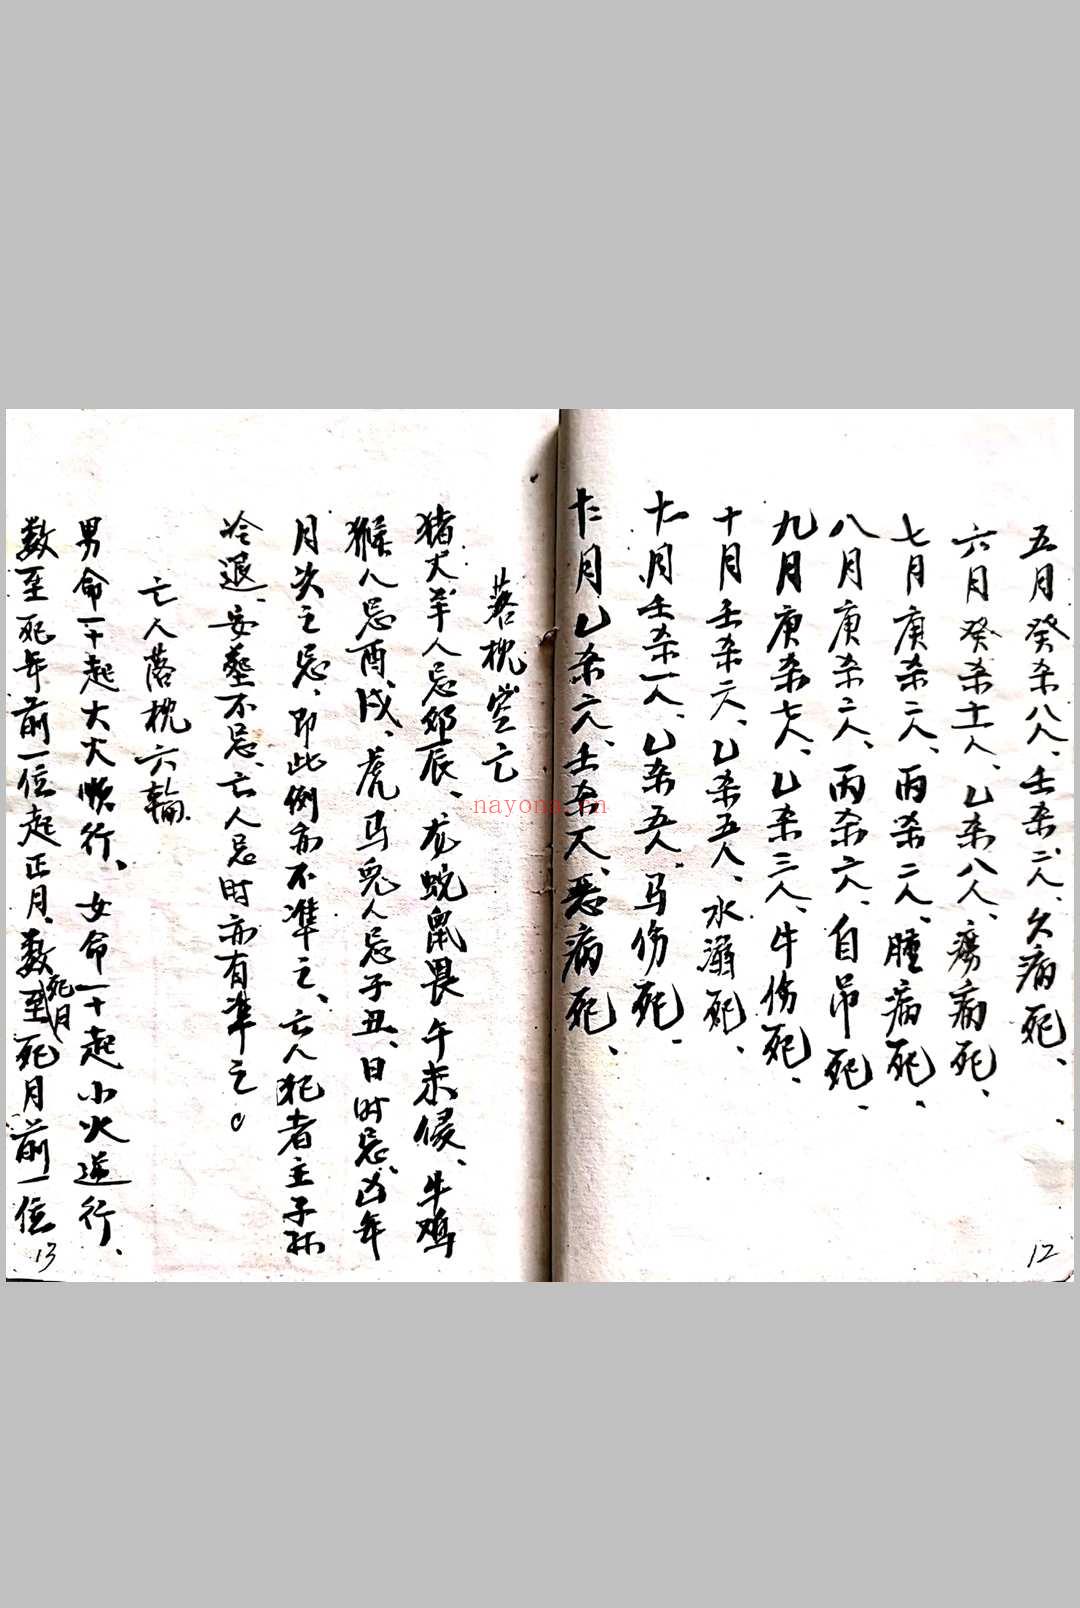 五月癸杀八人、壬杀二人、久病死、
六月癸杀十一人、乙杀八人、痨病死、
七月庚杀二人、丙杀二人、腫病死、
八月庚杀二人、丙杀六人、自吊死、
九月庚杀七人、乙杀三人、牛伤死、
十月壬杀六人、乙杀五人、水溺死、
十一月壬杀一人、乙杀五人、马伤死、
十二月乙杀六人、壬杀人、恶病死、
12
落枕空亡
猪犬羊人忌卯辰、龙蛇鼠畏午未侵、牛鸡
猴人忌酉戌、虎马兔人忌子丑、日时忌、凶年
月次之忌、即此例亦不準之、亡人犯者主子孙
冷退、安葬不忌、亡人忌时亦有準之。
亡人落枕六輪
男命一十起大火顺行、女命一十起小火逆行、
数至死年前一位起正月、数至死月死月前一位
13
nayona.cn